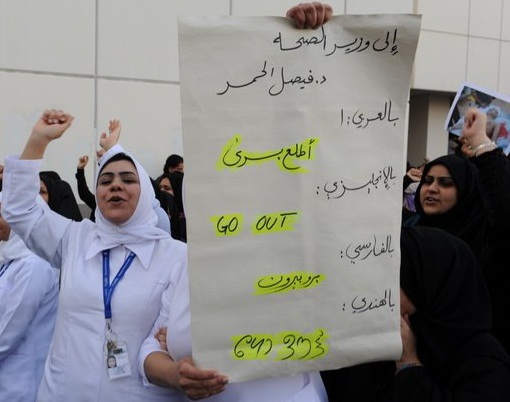 إلى وزير الصحة
د. فيصل الحمر
بالعربي:
أطلع بسرعة
بالإنجليزي:
GO OUT
بالفارسي:
برو بيرون
بالهندي: